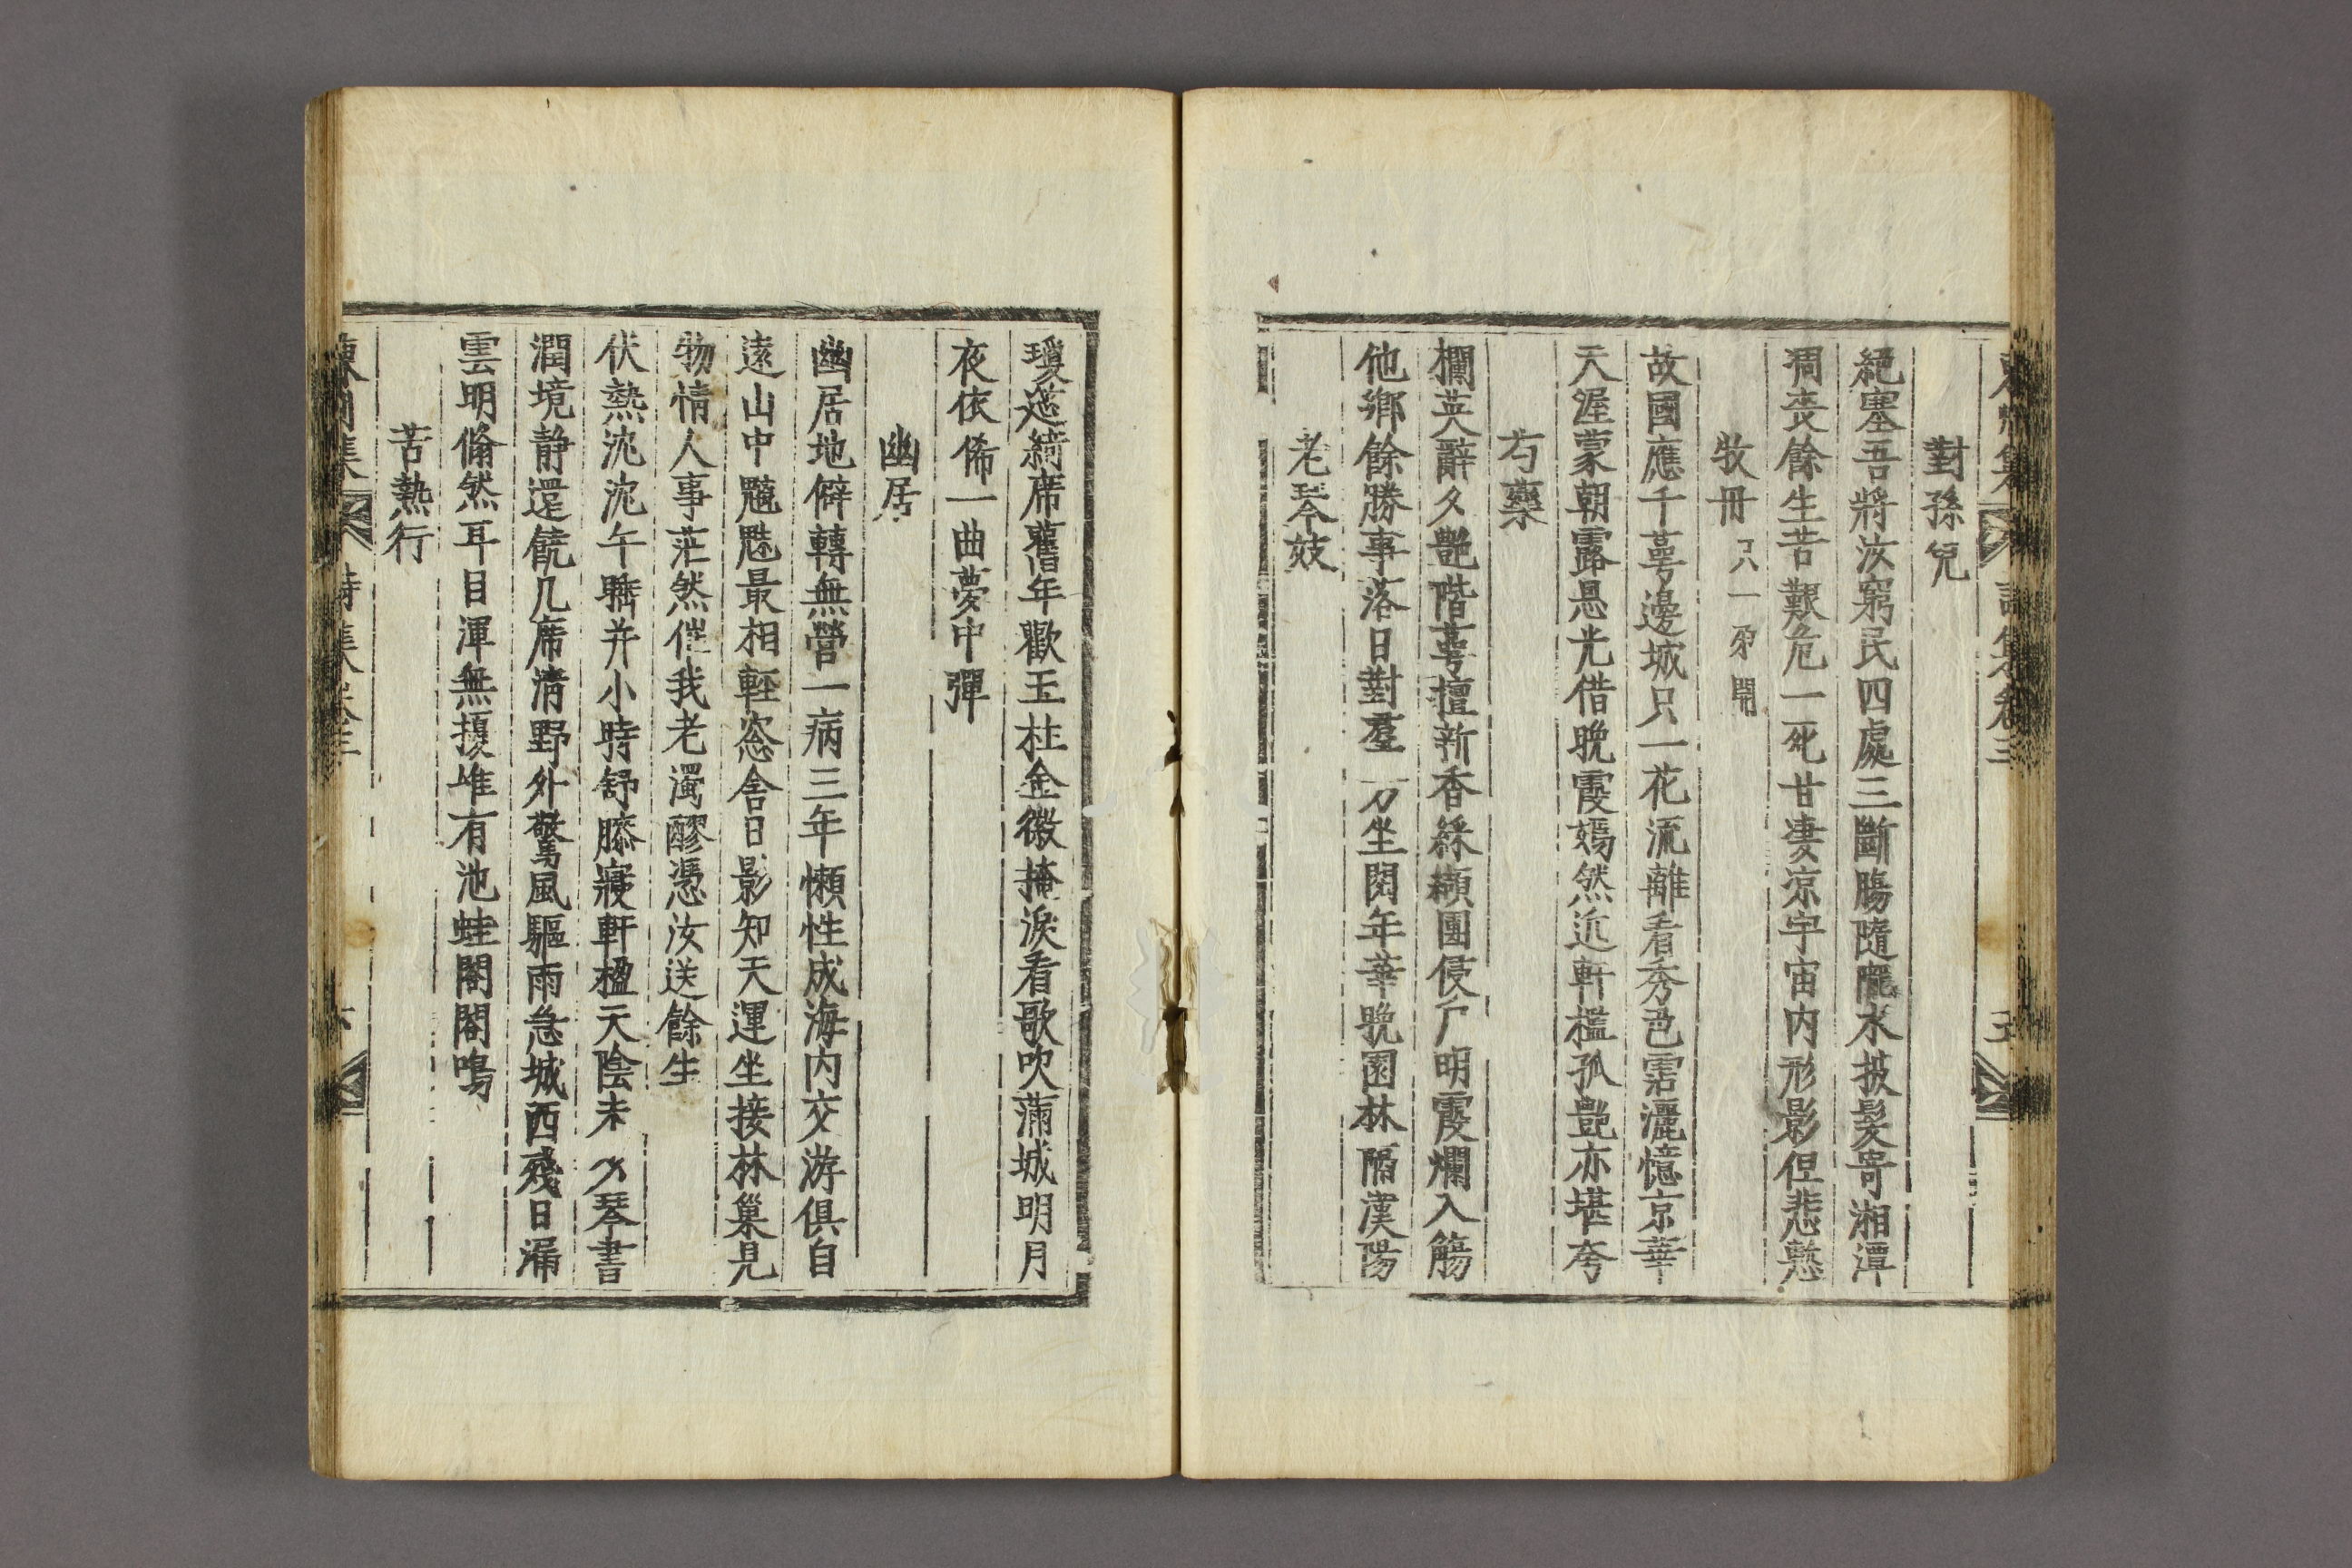 詩集卷三
對孫兒
絕塞吾將汝窮民四處三斷腸隨隴水披髮寄湘潭
凋喪餘生苦艱危一死甘凄涼宇宙內形影但悲慙
牧冊 只一朶開
故國應千萼邊城只一花流離看秀色霑灑憶京華
天渥蒙朝露恩光借晚霞嫣然近軒檻孤艶亦堪夸
芍藥
欄英辭久艶階萼擅新香綵纈團侵戶明霞爛入觴
他鄉餘勝事落日對羣 坐閱年華晚園林隔漢陽
老琴妓
瓊筵綺席舊年歡玉柱金徽掩淚看歌吹滿城明月
夜依俙一曲夢中彈
幽居
幽居地僻轉無營一病三年懶性成海內交游俱自
遠山中魑魅最相輕窓含日影知天運坐接林巢見
物情人事茫然催我老濁醪憑汝送餘生
伏熱沈沈午驕并小時舒膝寢軒楹天陰未 琴書
潤境靜還饒几席清野外驚風驅雨急城西殘日漏
雲明翛然耳目渾無擾唯有池蛙閤閤鳴
苦熱行
詩集卷三